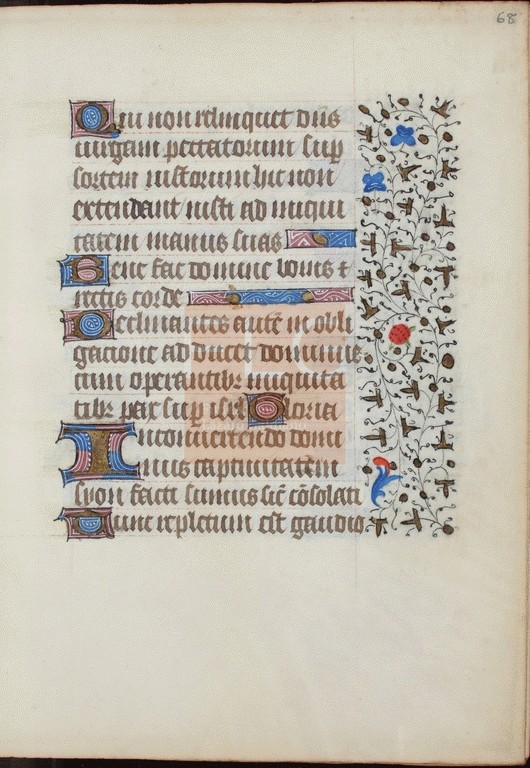 68
Qui non relinquet dn̄s
uirgam peccatorum sup̄
sortem iustorum hic non
extendant iusti ad iniqui
tatem manus suas
Bene fac domine bonis ⁊
rectis corde
Declinantes autē in obli
gacione adducet dominus
cum operantibꝫ iniquita
tibꝫ pax sup̄ isrl̄ Gloria
In conuertendo domi
nus captiuitatem
syon facti sumus sic̄ cōsolati
Tunc repletum est gaudio